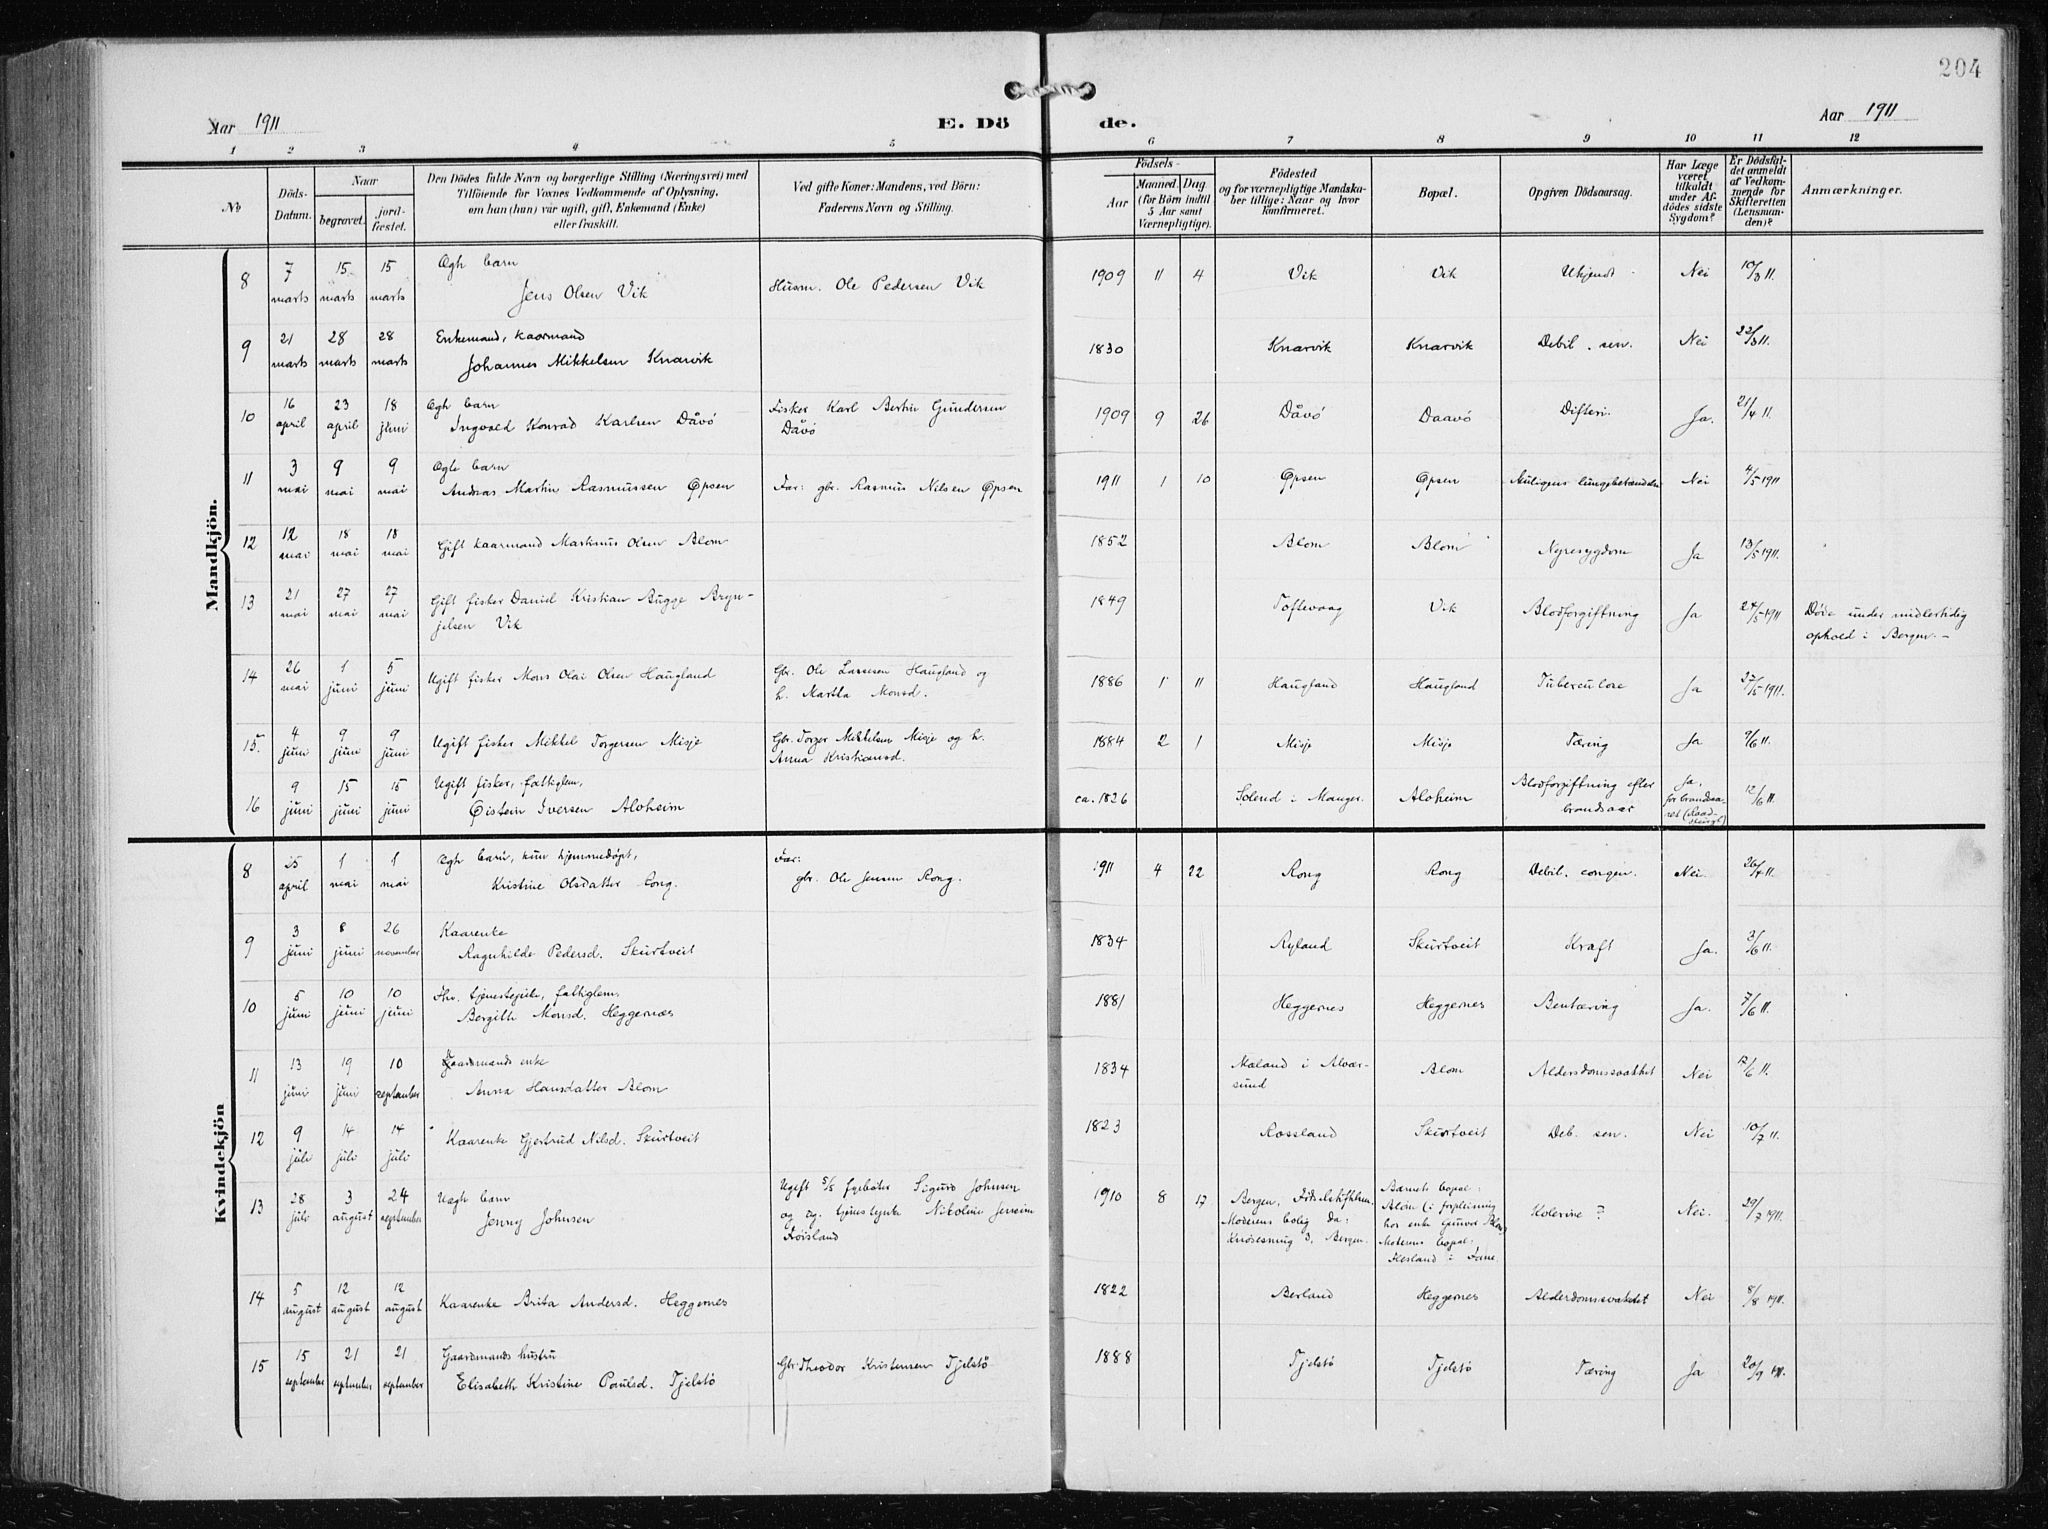 204
Aar 1911
E. Dö
de.
Aar 1911
1 2 3 4 5 6 7 8 9 10 11 12
No
Döds-
Datum.
Naar
begravet.
jord-
fæstet.
Den Dödes fulde Navn og borgerlige Stilling (Næringsvei) med
Tilföiende for Voxnes Vedkommende af Oplysning,
om han (hun) var ugift, gift, Enkemand (Enke)
eller fraskilt.
Ved gifte Koner: Mandens, ved Börn:
Faderens Navn og Stilling.
Födsels-
Aar
Maaned. Dag
(for Börn indtil
5 Aar samt
Værnepligtige).
Födested
og for værnepligtige Mandska-
ber tillige: Naar og hvor
konfirmeret.
Bopæl.
Opgiven Dödsaarsag.
Har Læge
været
tilkaldt
under Af-
dödes sidste
Sygdom?
Er Dödsfal-
det anmeldt
af Vedkom-
mende for
Skifteretten
(Lensman-
den)?
Anmærkninger.
Mandkjön.
8 7 marts 15 marts 15 marts
Ægh barn
Jens Olsen Vik
Husm. Ole Pedersen Vik
1909 11 4 Vik Vik Ukjendt Nei 10/3 11.
9 21 marts 28 marts 28 marts
Enkemand, kaarmand
Johannes Mikkelsen Knarvik
1830 Knarvik Knarvik Debil. sen. Nei 22/3 11.
10 16 april 23 april 18 juni
Ægh barn
Ingvald Konrad Karlsen Dåvö
Fisker Karl Bertin Gundersen
Dåvö
1909 9 26 Dåvö Daavö Difteri. Ja. 21/4 11.
11 3 mai 9 mai 9 mai
Ægte barn
Andras Martin Rasmussen Øpsen
Far: gbr. Rasmus Nilsen Øpsen
1911 1 10 Øpsen Øpsen Nei 4/5 1911
12 12 mai 18 mai 18 mai
Gift kaarmand Markus Olsen Blom
1852 Blom Blom Nyresygdom Ja 13/5 1911.
13 21 mai 27 mai 27 mai
Gift fisker Daniel Kristian Bugge Bryn-
jelsen Vik
1849 Toftevaag Vik Blodforgiftning Ja 24/5 1911
Døde under midlertidig
ophold i Bergen. –
14 26 mai 1 juni 5 juni
Ugift fisker Mons Olai Olsen Haugland
Gbr. Ole Larssen Haugland og
h. Martha Monsd.
1886 1 11 Haugland Haugland Tuberculose Ja 27/5 1911.
15. 4 juni 9 juni 9 juni
Ugift fisker Mikkel Torgersen Misje
Gbr. Torger Mikkelsen Misje og h.
Anna Kristiansd.
1884 2 1 Misje Misje Tæring Ja 9/6 11.
16 9 juni 15 juni 15 juni
Ugift fisker, fattiglem,
Øistein Iversen Aloheim
ca. 1826 i Manger. Aloheim
Blodforgiftning efter
brandsaar
Ja,
for brandsaa-
ret
12/6 11.
Kvindekjön
8 25 april 1 mai 1 mai
Ægh barn, kun hjemmedøpt,
Kristine Olsdatter Rong.
Far:
gbr. Ole Jensen Rong.
1911 4 22 Rong Rong Debil. congen. Nei. 26/4 11.
9 3 juni 8 juni 26 november
Kaarenke
Ragnhilde Pedersd. Skurtveit
1834 Ryland Skurtveit Kræft Ja. 3/6 11.
10 5 juni 10 juni 10 juni
Fhv. tjenestepike, fattiglem,
Bergith Monsd. Heggernæs
1881 Heggernes Heggernes Bentæring Ja. 7/6 11.
11 13 juni 19 juni 10 september
Gaardmands enke
Anna Hansdatter Blom
1834
Maland i Alvær-
sund
Blom Alderdomssvakhet Nei 17/6 11.
12 9 juli 14 juli 14 juli
Kaarenke Gjertrud Nilsd. Skurtveit
1823 Rossland Skurtveit Deb. sen. Nei 10/7 11.
13 28 juli 3 august 24 september
Uægh barn
Jenny Johnsen
Ugift s/s fyrbøter Sigurd Johnsen
og ug. Nikoline
1910 8 17
Bergen, Fødselsstiftelsen.
Moderens bolig da:
3, Bergen.
Barnets bopæl:
(i forpleining
hos enke
Moderens bopæl:
i Fane
Kolerine ? Nei. 29/7 1911.
14 5 august 12 august 12 august
Kaarenke Brita Andersd. Heggernes
1822 Berland Heggernes Alderdomssvakhet Nei 8/8 1911.
15 15 september 21 september 21 september
Gaardmands hustru
Elisabeth Kristine Poulsd. Tjelstö
Gbr. Theodor Kristensen Tjelstö
1888 Tjelstö Tjelstö Tæring Ja 20/9 1911.